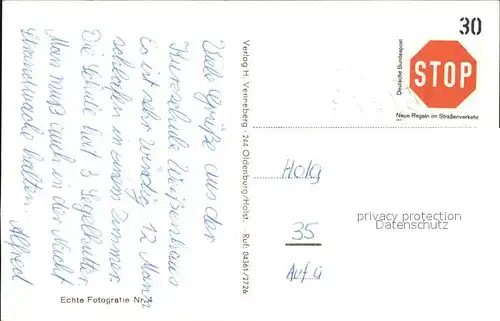 Viele Grüße aus der
Kurzschule Weißenhaus
Es ist sehr windig. 12 Mann
schlafen in einem Zimmer.
Die Schule hat 3 Segelkutter.
Man muß auch in der Nacht
Strandwache halten. Alfred
Echte Fotografie Nr. 1
Verlag H. Venneberg · 244 Oldenburg/Holst. Ruf: 04361/2726
30
Deutsche Bundespost
STOP
Neue Regeln im Straßenverkehr
Holg
35
Auf G
privacy protection
Datenschutz